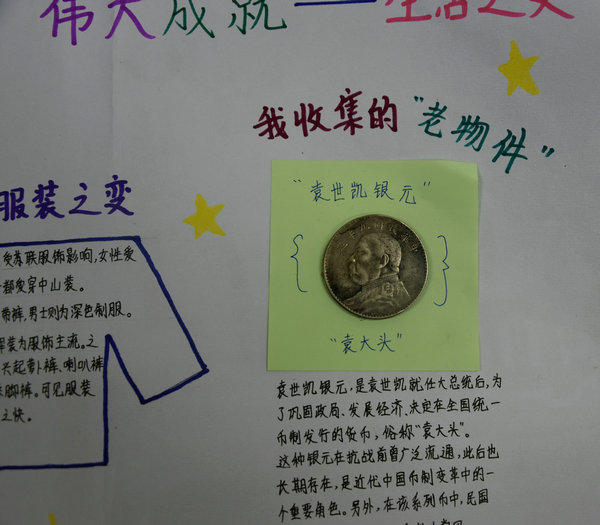 伟大成就——生活之变
我收集的“老物件”
“袁世凯银元”
“袁大头”
服装之变
受苏联服饰影响,女性爱
都爱穿中山装。
带裤,男士则为深色制服。
装为服饰主流。之
兴起萝卜裤、喇叭裤
脚裤。可见服装
之快。
袁世凯银元,是袁世凯就任大总统后,为
了巩固政局、发展经济、决定在全国统一
币制发行的货币,俗称“袁大头”。
这种银元在抗战前曾广泛流通,此后也
长期存在,是近代中国币制变革中的一
个重要角色。另外,在该系列币中,民国